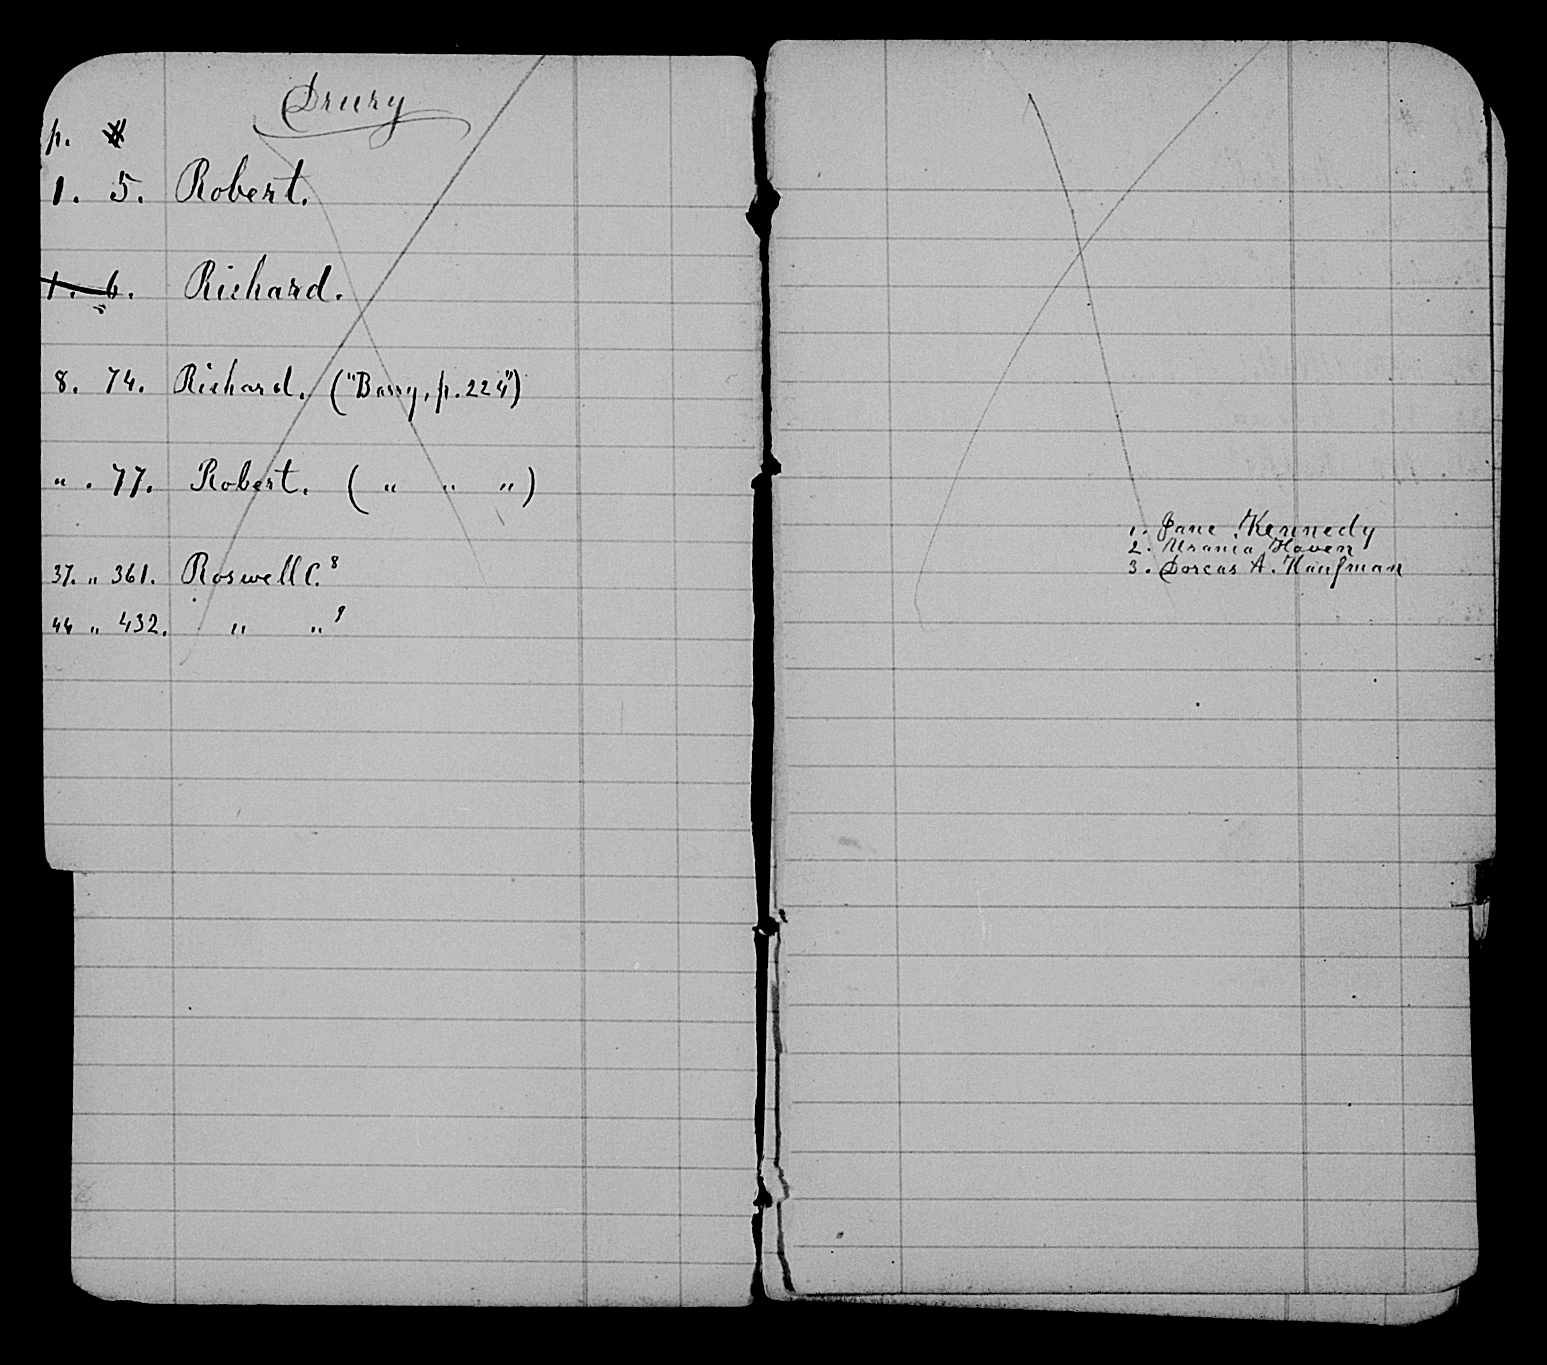 Drury
p. #
1. 5. Robert.
1. 6. Richard.
8. 74. Richard. ("Barry, p. 224")
" . 77. Robert. ( " " " )
37. " 361. Roswell C.⁸
44 " 432. " " ⁹
1. Jane Kennedy
2. Urania Haven
3. Dorcas A. Kaufman